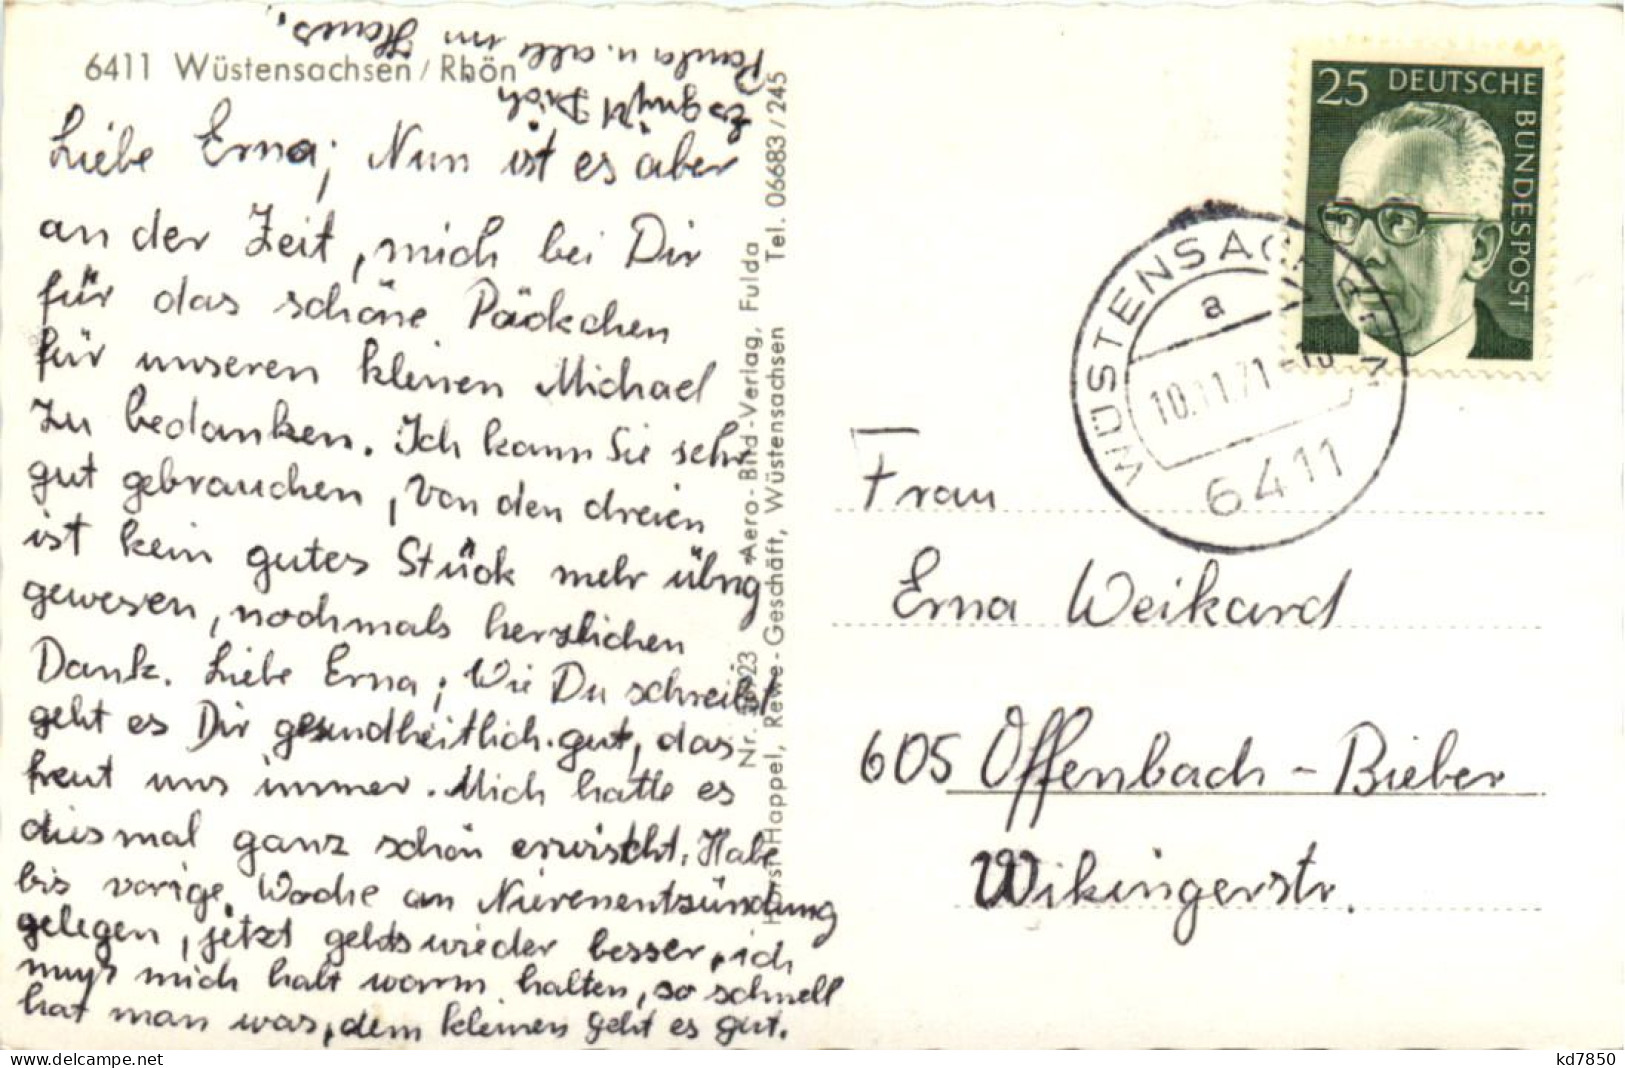 6411 Wüstensachsen/Rhön
Liebe Erna; Nun ist es aber
an der Zeit, mich bei Dir
für das schöne Päckchen
für unseren kleinen Michael
zu bedanken. Ich kann Sie sehr
gut gebrauchen, von den dreien
ist kein gutes Stück mehr übrig
gewesen, nochmals herzlichen
Dank. Liebe Erna; Wie Du schreibst
geht es Dir gesundheitlich gut, das
freut uns immer. Mich hatte es
diesmal ganz schön erwischt. Habe
bis vorige Woche an Nierenentzündung
gelegen, jetzt gehts wieder besser, ich
muß mich halt warm halten, so schnell
hat man was, dem kleinen geht es gut.
Es grüßt Dich
Paula u. alle im
Haus.
Nr. Aero-Bild-Verlag, Fulda
Horst Happel, Rewe-Geschäft, Wüstensachsen Tel. 06683/245
25 DEUTSCHE
BUNDESPOST
WÜSTENSACHSEN
a
10.11.71
6411
Frau
Erna Weikard
605 Offenbach-Bieber
Wikingerstr.
kd7850